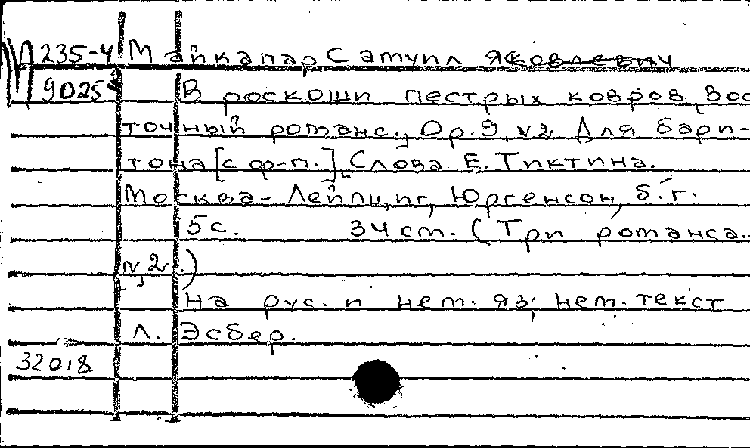 М 235-4 Майкапар Самуил Яковлевич
9025 В роскоши пестрых ковров. Вос-
точный романс., Op.9 N2. Для бари-
тона [с ф-п.]. Слова Е. Тиктина.
Москва - Лейпциг, Юргенсон, б.г.
5с. 34 см. (Три романса..
N2.)
На рус. и нем. яз; нем. текст
Л. Эсбер.
32018